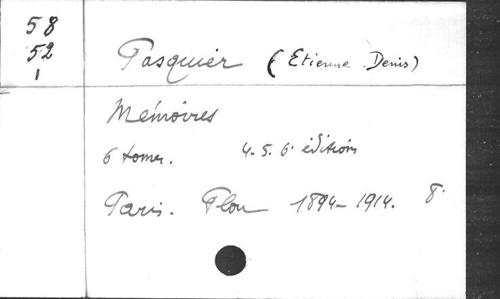 58
52
1
Pasquier (Etienne Denis)
Mémoires
6 tomes. 4-5. 6. édition
Paris. Plon 1894-1914. 8.